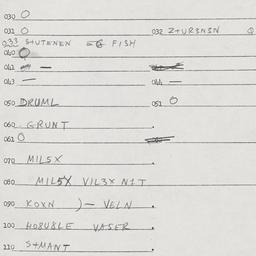 030 O
031 O 032 Z+UR3N3N Q
033 S+UTENEN EG FISH
040 O
041 —
043 — 044 —
050 DRUML 051 O
060 GRUNT
061 O
070 MIL5X
080 MIL5X VIL3X N1T
090 KOXN )— VELN
100 HOBUBLE VASER
110 S+MANT